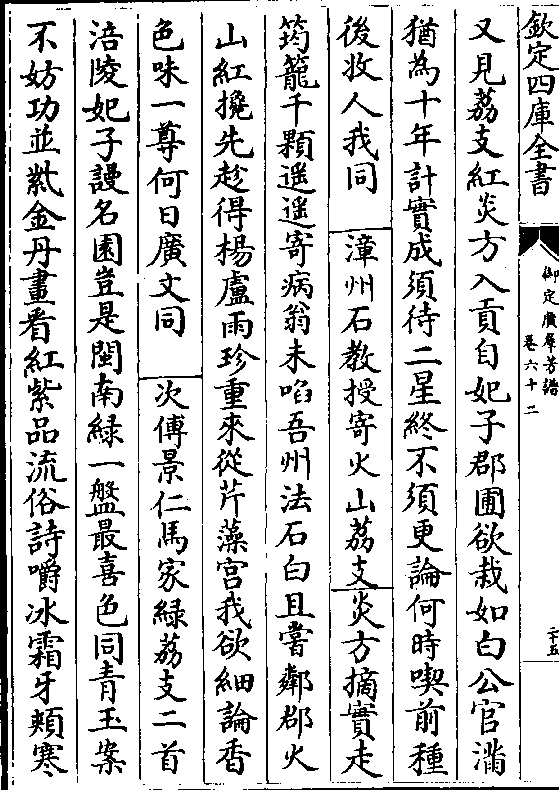 欽定四庫全書
御定廣羣芳譜
卷六十二
二十五
又見荔支紅炎方入貢自妃子郡圃欲栽如白公官滿
猶為十年計實成須待二星終不須更論何時喫前種
後收人我同 漳州石教授寄火山荔支炎方摘實走
筠籠千顆遥遥寄病翁未啗吾州法石白且嘗鄰郡火
山紅攙先趁得楊盧雨珍重來從芹藻宮我欲細論香
色味一尊何日廣文同 次傅景仁馬家緑荔支二首
涪陵妃子謾名園豈是閩南緑一盤最喜色同青玉案
不妨功並紫金丹畫看紅紫品流俗詩嚼冰霜牙頰寒